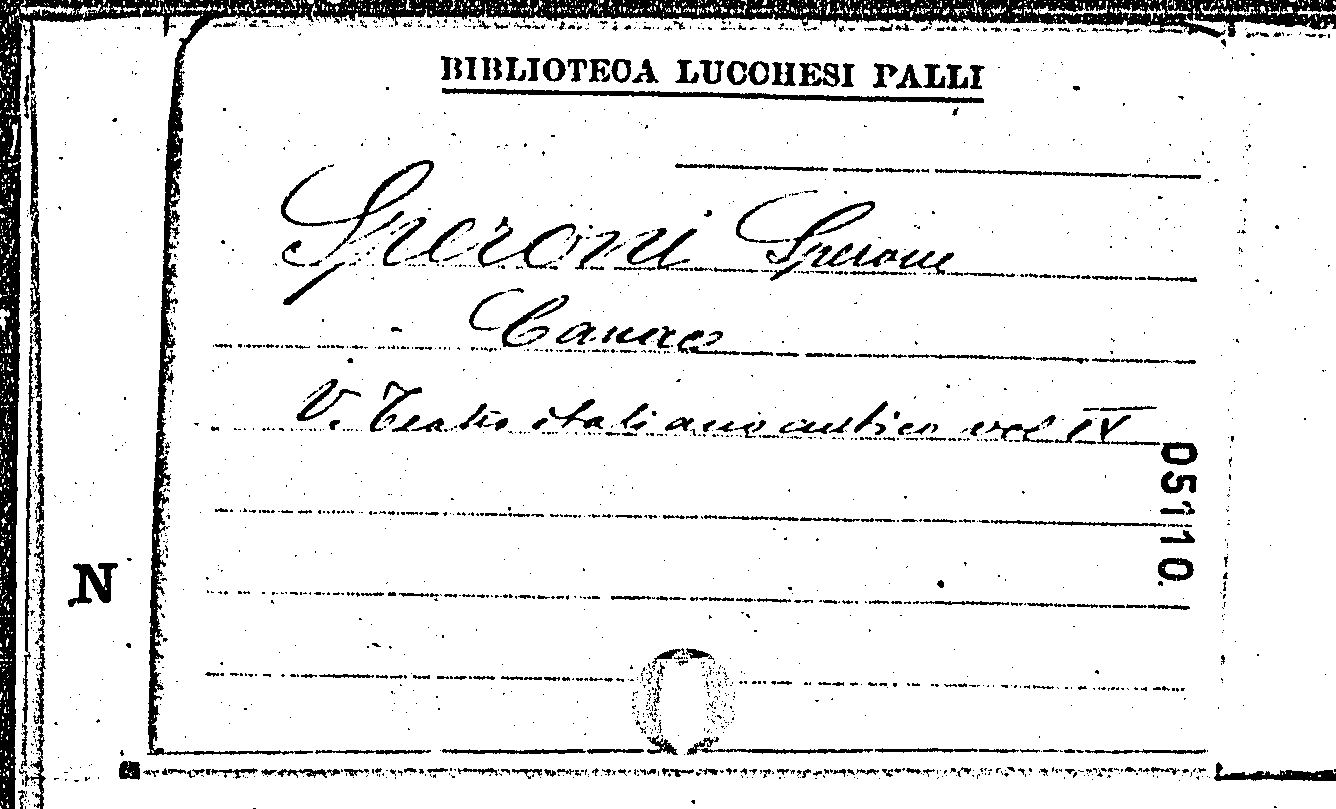 BIBLIOTECA LUCCHESI PALLI
Speroni Sperone
Canace
V. Teatro italiano antico vol IV
05110
N